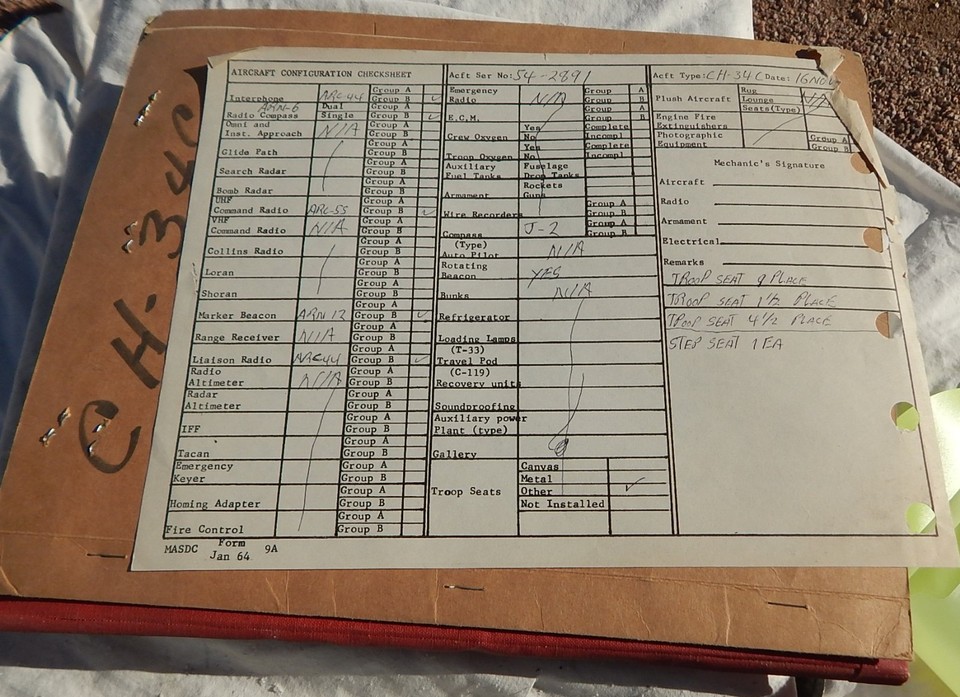 CH-34C
AIRCRAFT CONFIGURATION CHECKSHEET
Interphone ARC-44 Group A
Group B ✓
ARN-6 Dual Group A
Radio Compass Single Group B ✓
Omni and Group A
Inst. Approach N/A Group B
Group A
Glide Path Group B
Group A
Search Radar Group B
Group A
Bomb Radar Group B
UHF Group A
Command Radio ARC-55 Group B ✓
VHF Group A
Command Radio N/A Group B
Group A
Collins Radio Group B
Group A
Loran Group B
Group A
Shoran Group B
Group A
Marker Beacon ARN 12 Group B ✓
Group A
Range Receiver N/A Group B
Group A
Liaison Radio ARC44 Group B ✓
Radio Group A
Altimeter N/A Group B
Radar Group A
Altimeter Group B
Group A
IFF Group B
Group A
Tacan Group B
Emergency Group A
Keyer Group B
Group A
Homing Adapter Group B
Group A
Fire Control Group B
MASDC Form 9A
Jan 64
Acft Ser No: 54-2891
Emergency Group A
Radio N/A Group B
Group A
E.C.M. Group B
Yes Complete
Crew Oxygen No Incompl
Yes Complete
Troop Oxygen No Incompl
Auxiliary Fuselage
Fuel Tanks Drop Tanks
Rockets
Armament Guns
Group A
Wire Recorders Group B
Group A
Compass J-2 Group B
(Type)
Auto Pilot N/A
Rotating
Beacon YES
Bunks N/A
Refrigerator
Loading Lamps
(T-33)
Travel Pod
(C-119)
Recovery units
Soundproofing
Auxiliary power
Plant (type)
Gallery
Canvas
Metal
Troop Seats Other ✓
Not Installed
Acft Type: CH-34C Date: 16NOV
Rug
Plush Aircraft Lounge N/A
Seats(Type)
Engine Fire
Extinguishers
Photographic Group A
Equipment Group B
Mechanic's Signature
Aircraft
Radio
Armament
Electrical
Remarks
TROOP SEAT 9 PLACE
TROOP SEAT 1 1/2 PLACE
TROOP SEAT 4 1/2 PLACE
STEP SEAT 1 EA